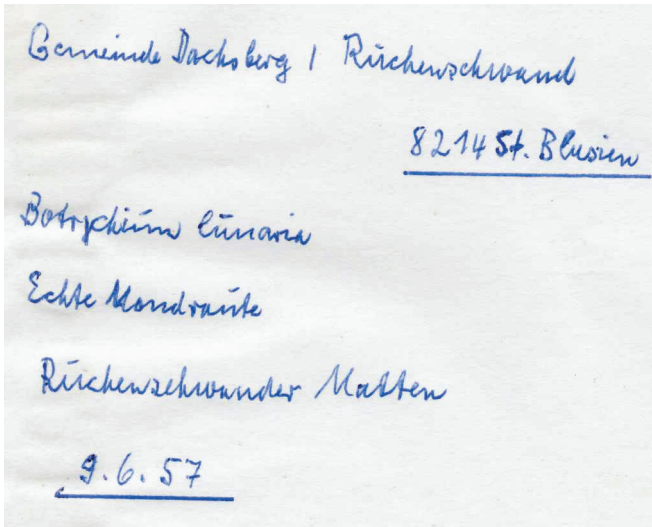 Gemeinde Dachsberg / Ruchenschwand
8214 St. Blasien
Botrychium lunaria
Echte Mondraute
Ruchenschwander Matten
9.6.57